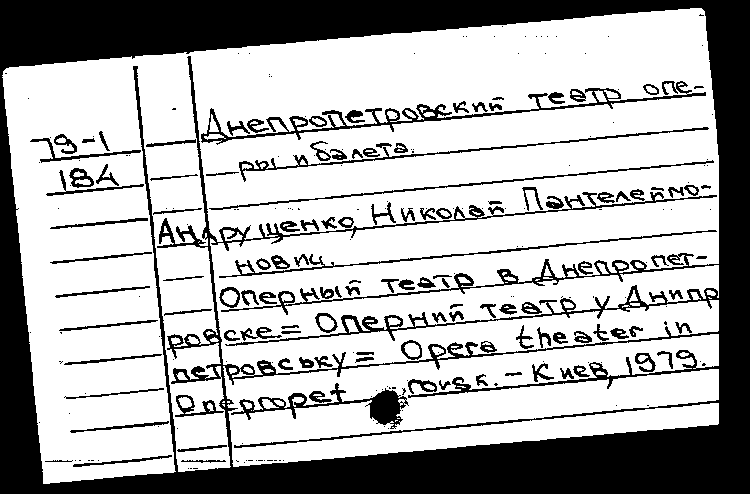 Днепропетровский театр опе-
79-1
ры и балета.
184
Андрущенко, Николай Пантелеймо-
нович.
Оперный театр в Днепропет-
ровске.= Оперний театр у Днипр
петровську = Opera theater in
Dnepropet rovsk. – Киев, 1979.